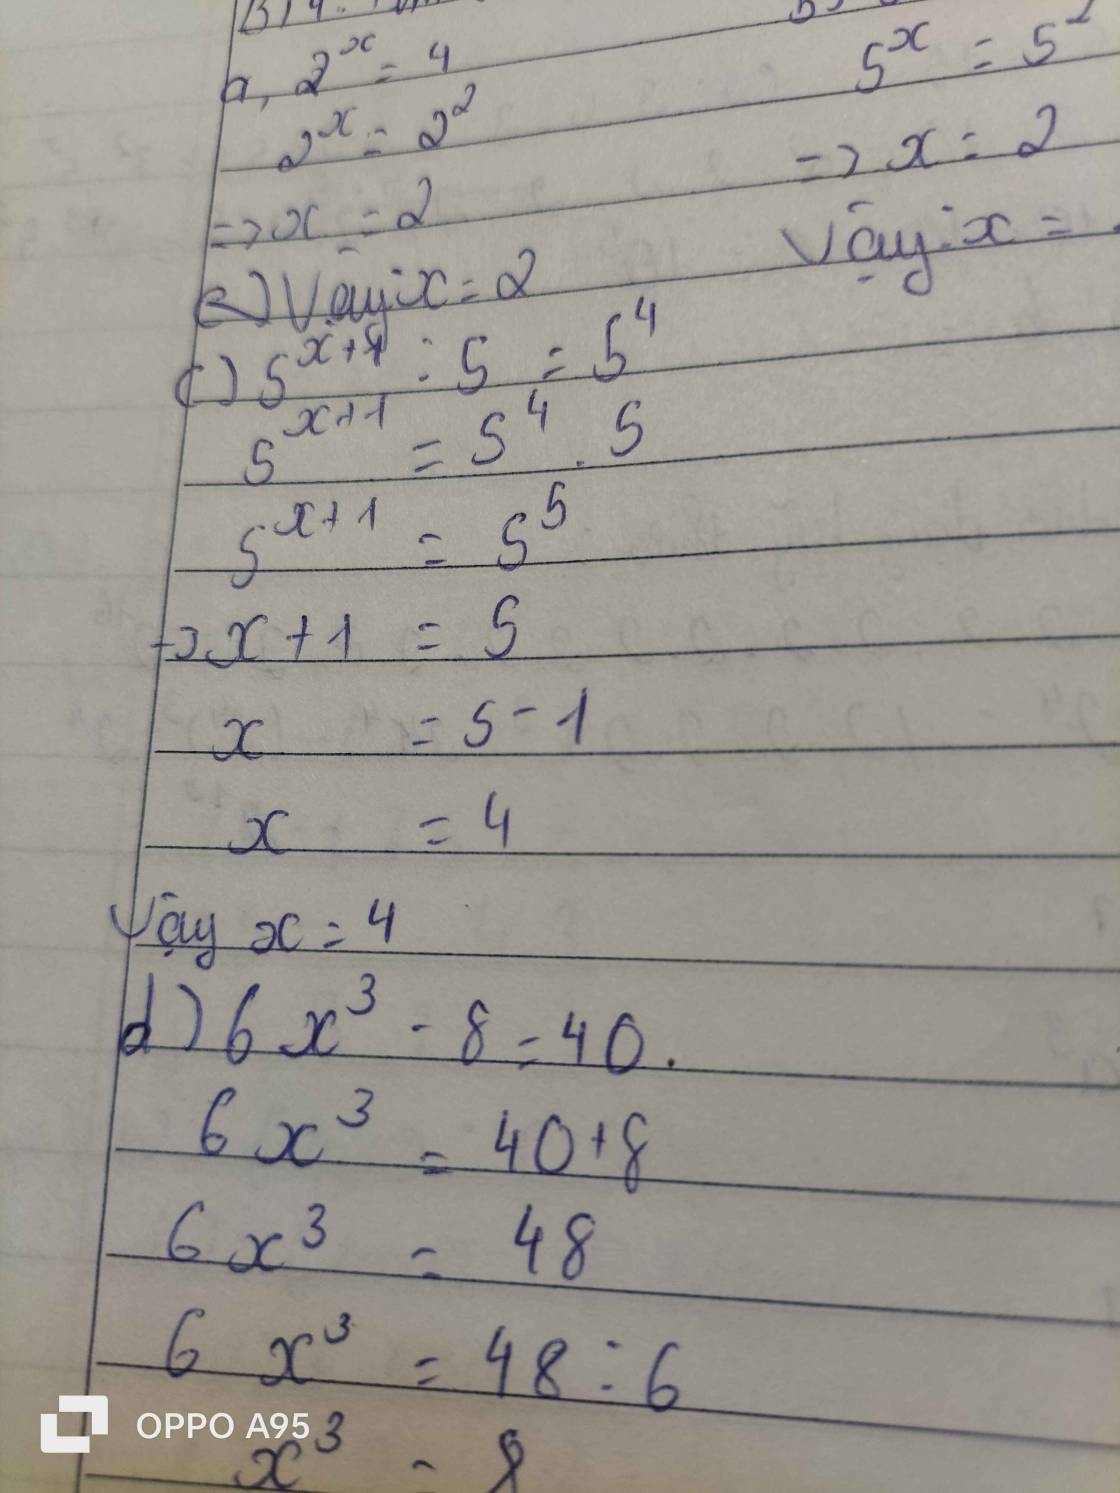 a, 2^x = 4
5^x = 5^2
2^x = 2^2
=> x = 2
=> x = 2
Vậy: x =
Vậy: x = 2
c) 5^{x+1} : 5 = 5^4
5^{x+1} = 5^4 . 5
5^{x+1} = 5^5
=> x + 1 = 5
x = 5 - 1
x = 4
Vậy x = 4
d) 6x^3 - 8 = 40.
6x^3 = 40 + 8
6x^3 = 48
6 x^3 = 48 : 6
x^3 = 8
OPPO A95